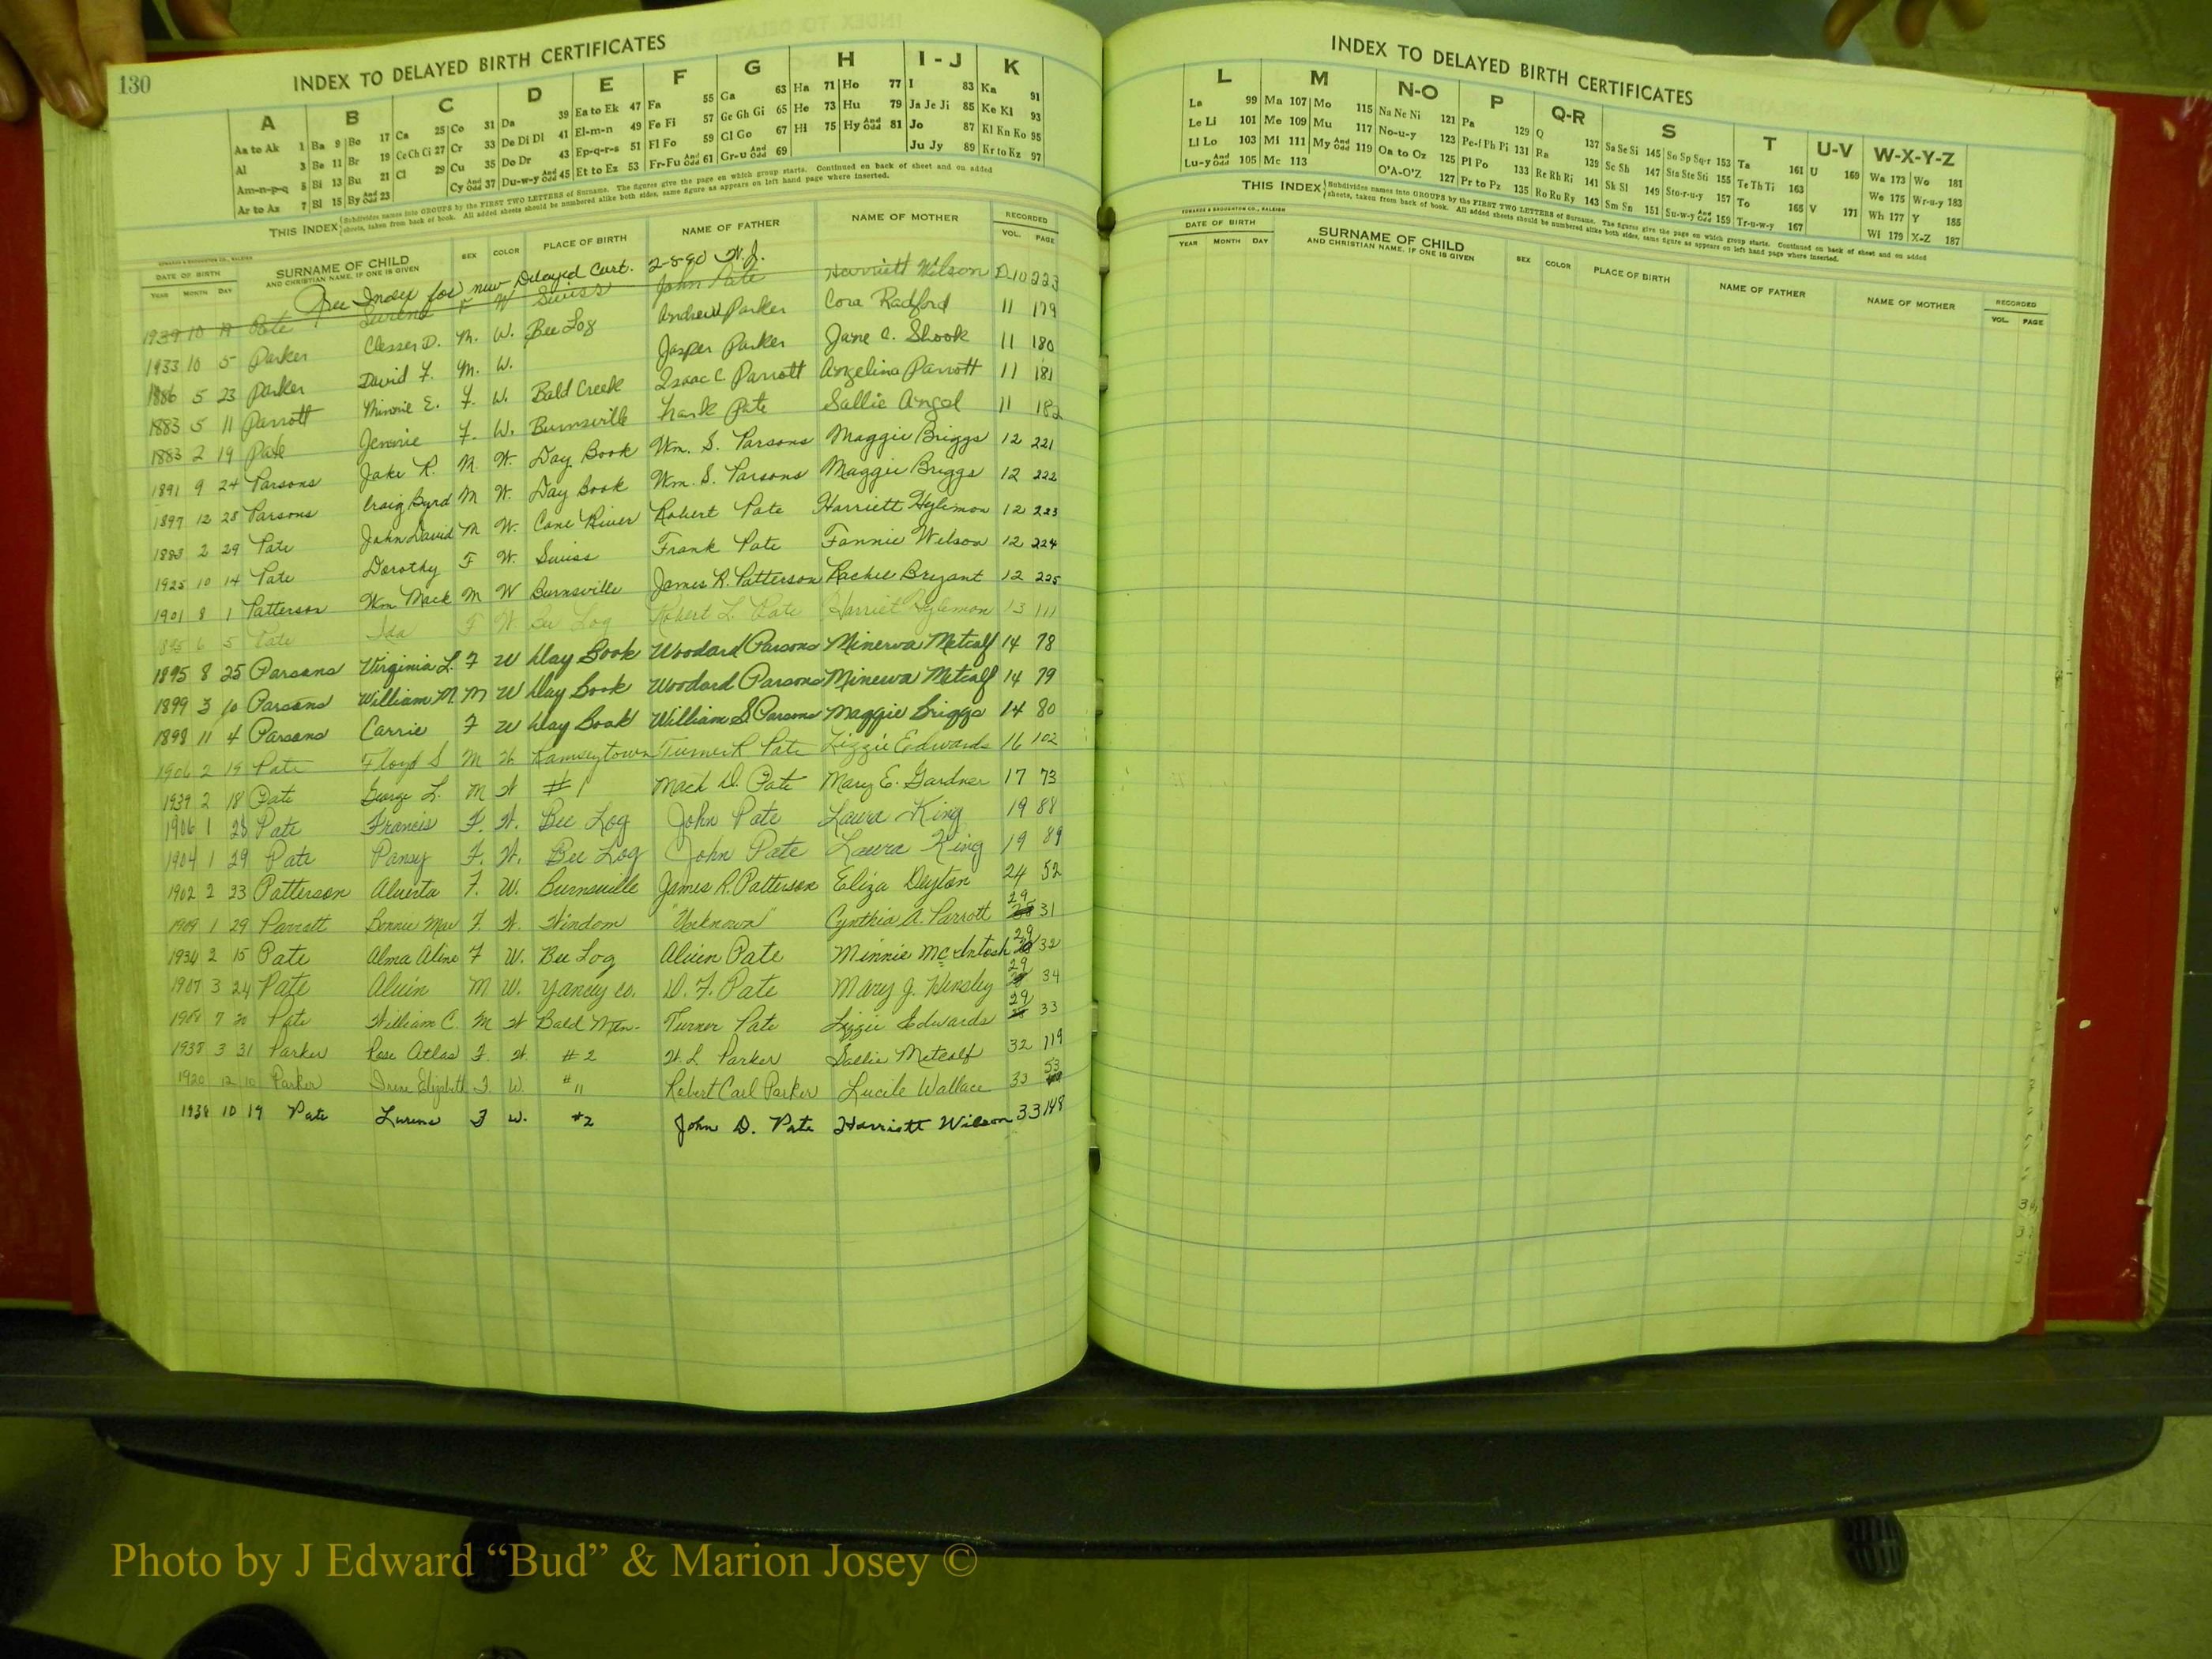 130
INDEX TO DELAYED BIRTH CERTIFICATES
A B C D E F G H I - J K
Aa to Ak 1 Ba 9 Bo 17 Ca 25 Co 31 Da 39 Ea to Ek 47 Fa 55 Ga 63 Ha 71 Ho 77 I 83 Ka 91
Al 3 Be 11 Br 19 Ce Ch Ci 27 Cr 33 De Di Dl 41 El-m-n 49 Fe Fi 57 Ge Gh Gi 65 He 73 Hu 79 Ja Je Ji 85 Ke Ki 93
Am-n-p-q 5 Bi 13 Bu 21 Cl 29 Cu 35 Do Dr 43 Ep-q-r-s 51 Fl Fo 59 Gl Go 67 Hi 75 Hy And Odd 81 Jo 87 Kl Kn Ko 95
Ar to Az 7 Bl 15 By And Odd 23 Cy And Odd 37 Du-w-y And Odd 45 Et to Ez 53 Fr-Fu And Odd 61 Gr-u And Odd 69 Ju Jy 89 Kr to Kz 97
THIS INDEX Subdivides names into GROUPS by the FIRST TWO LETTERS of Surname. The figures give the page on which group starts. Continued on back of sheet and on added
sheets, taken from back of book. All added sheets should be numbered alike both sides, same figure as appears on left hand page where inserted.
EDWARDS & BROUGHTON CO., RALEIGH
DATE OF BIRTH SURNAME OF CHILD SEX COLOR PLACE OF BIRTH NAME OF FATHER NAME OF MOTHER RECORDED
YEAR MONTH DAY AND CHRISTIAN NAME, IF ONE IS GIVEN VOL. PAGE
See Index for new Delayed Cert. 2-8-90
1939 10 19 Pate Lurena F W Swiss John Pate Harriett Wilson D-10 223
1933 10 5 Parker Clesser D. M. W. Bee Log Andrew Parker Cora Radford 11 179
1886 5 23 Parker David F. M. W. Jasper Parker Jane C. Shook 11 180
1883 5 11 Parrott Minnie E. F. W. Bald Creek Isaac C. Parrott Angelina Parrott 11 181
1883 2 19 Pate Jennie F. W. Burnsville Hank Pate Sallie Angel 11 182
1891 9 24 Parsons Jake R. M. W. Day Book Wm. S. Parsons Maggie Briggs 12 221
1897 12 28 Parsons Craig Byrd M W. Day Book Wm. S. Parsons Maggie Briggs 12 222
1883 2 29 Pate John David M W. Cane River Robert Pate Harriett Hylemon 12 223
1925 10 14 Pate Dorothy F W. Swiss Frank Pate Fannie Wilson 12 224
1901 8 1 Patterson Wm Mack M W Burnsville James R. Patterson Rachel Bryant 12 225
6 5 Pate Ida F W Bee Log Robert L. Pate Harriet Hylemon 13 111
1895 8 25 Parsons Virginia L. F W Day Book Woodard Parsons Minerva Metcalf 14 78
1899 3 10 Parsons William M. M W Day Book Woodard Parsons Minerva Metcalf 14 79
1898 11 4 Parsons Carrie F W Day Book William S. Parsons Maggie Briggs 14 80
1906 2 19 Pate Floyd S M W Ramseytown Turner R Pate Lizzie Edwards 16 102
1939 2 18 Pate George L. M W #1 Mack D. Pate Mary E. Gardner 17 73
1906 1 28 Pate Francis F. W. Bee Log John Pate Laura King 19 88
1904 1 29 Pate Pansy F. W. Bee Log John Pate Laura King 19 89
1902 2 23 Patterson Alverta F. W. Burnsville James R. Patterson Eliza Deyton 24 52
1909 1 29 Parrott Bonnie Mae F. W. Windom "Unknown" Cynthia A. Parrott 29 31
1934 2 15 Pate Alma Aline F W. Bee Log Alvin Pate Minnie McIntosh 29 32
1907 3 24 Pate Alvin M W. Yancey Co. D. F. Pate Mary J. Hensley 29 34
1908 7 20 Pate William C. M W Bald Mtn. Turner Pate Lizzie Edwards 29 33
1938 3 31 Parker Rose Atlas F. W. #2 W. L. Parker Sallie Metcalf 32 119
1920 12 10 Parker Irene Elizabeth F. W. #11 Robert Carl Parker Lucile Wallace 33 53
1938 10 19 Pate Lurena F W. #2 John D. Pate Harriett Wilson 33 148
INDEX TO DELAYED BIRTH CERTIFICATES
L M N-O P Q-R S T U-V W-X-Y-Z
La 99 Ma 107 Mo 115 Na Ne Ni 121 Pa 129 Q 137 Sa Se Si 145 So Sp Sq-r 153 Ta 161 U 169 Wa 173 Wo 181
Le Li 101 Me 109 Mu 117 No-u-y 123 Pe-f Ph Pi 131 Ra 139 Sc Sh 147 Sta Ste Sti 155 Te Th Ti 163 We 175 Wr-u-y 183
Ll Lo 103 Mi 111 My And Odd 119 Oa to Oz 125 Pl Po 133 Re Rh Ri 141 Sk Sl 149 Sto-r-u-y 157 To 165 V 171 Wh 177 Y 185
Lu-y And Odd 105 Mc 113 O'A-O'Z 127 Pr to Pz 135 Ro Ru Ry 143 Sm Sn 151 Su-w-y And Odd 159 Tr-u-w-y 167 Wi 179 X-Z 187
THIS INDEX Subdivides names into GROUPS by the FIRST TWO LETTERS of Surname. The figures give the page on which group starts. Continued on back of sheet and on added
sheets, taken from back of book. All added sheets should be numbered alike both sides, same figure as appears on left hand page where inserted.
EDWARDS & BROUGHTON CO., RALEIGH
DATE OF BIRTH SURNAME OF CHILD SEX COLOR PLACE OF BIRTH NAME OF FATHER NAME OF MOTHER RECORDED
YEAR MONTH DAY AND CHRISTIAN NAME, IF ONE IS GIVEN VOL. PAGE
Photo by J Edward “Bud” & Marion Josey ©